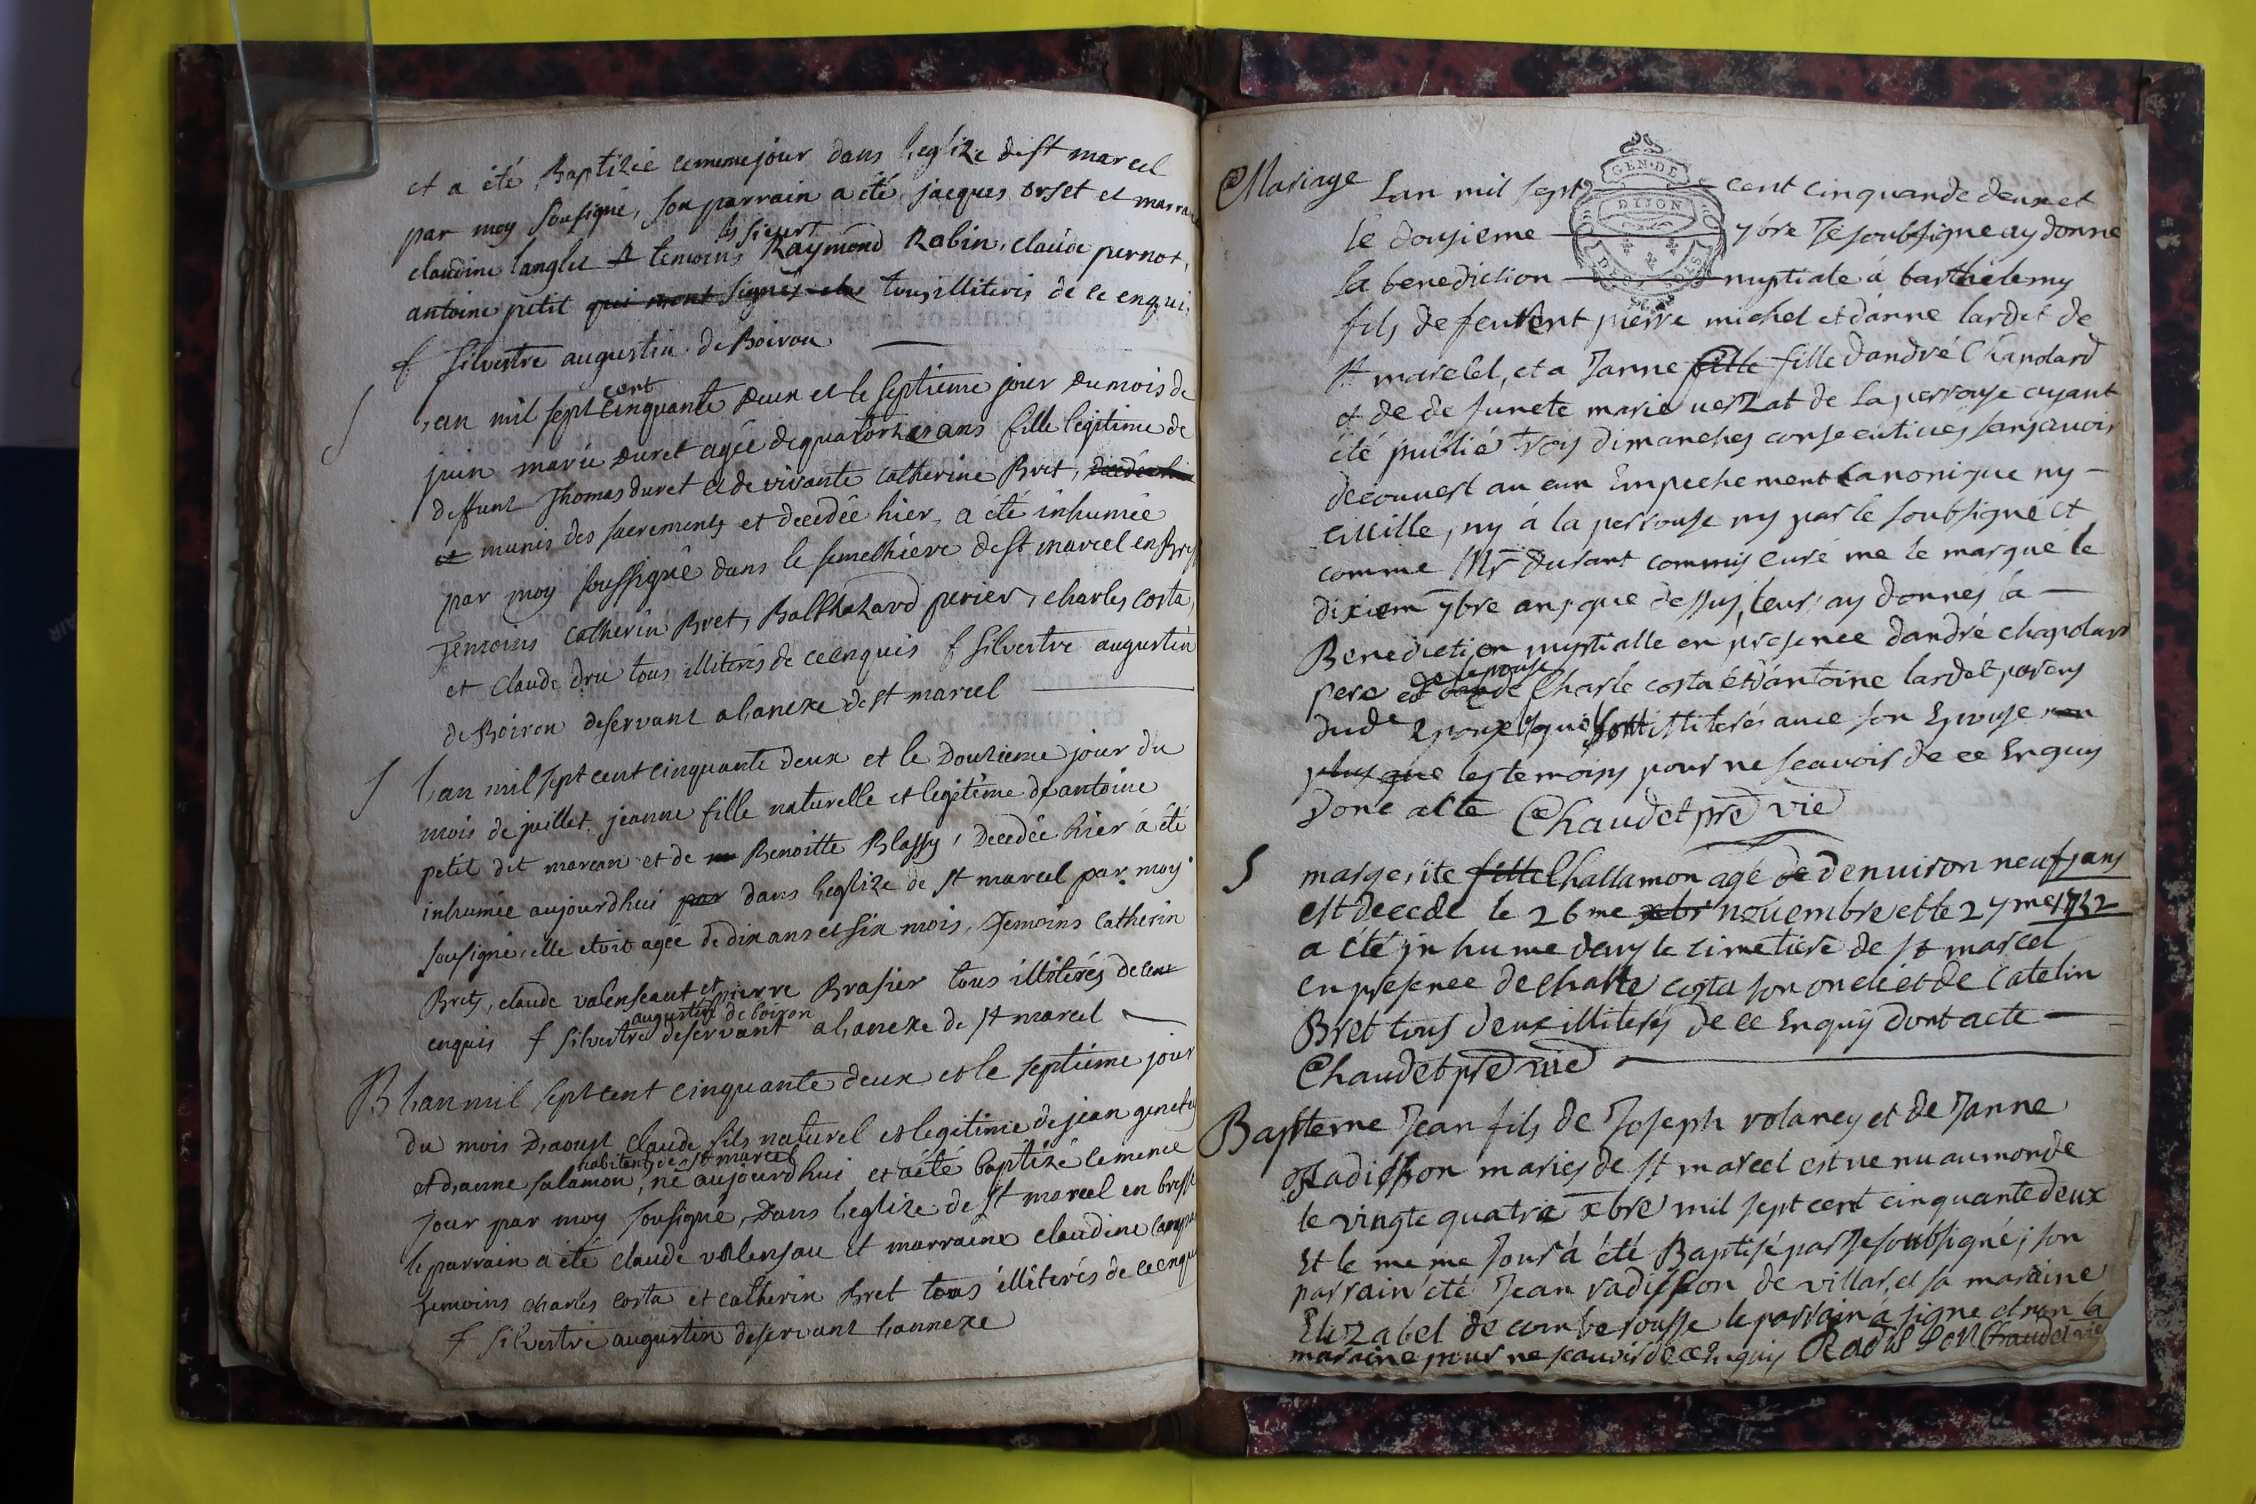 et a été Baptizée le meme jour dans l'eglize de st marcel
par moy sousigné, son parrain a été jacques orset et marrai
claudine langlet temoins les sieurs Raymond Rabin, claude pernot,
antoine petit qui n'ont signés tous illiterés de ce enquis,
f silvestre augustin de Boiron
S l'an mil sept cent cinquante deux et le septieme jour du mois de
juin marie duret agée de quatorze ans fille legitime de
deffunt Thomas duret et de vivante catherine Bret,
munis des sacrements et decedée hier, a été inhumée
par moy soussigné dans le semethiere de st marcel en Bress
Temoins catherin Bret, Balthazard perier, charles costa,
et claude dru tous illiterés de ce enquis f silvestre augustin
de Boiron deservant a l'anexe de st marcel
S L'an mil sept cent cinquante deux et le Douzieme jour du
mois de juillet jeanne fille naturelle et legitime de antoine
petit dit morean et de Benoitte Blassy, Decedée hier a été
inhumée aujourdhui par dans l'eglize de st marcel par moy
sousigné, elle etoit agée de dix ans et six mois, Temoins catherin
Bret, claude valenseaut et pierre Brasier tous illiterés de ceux
enquis f silvestre augustin de boiron deservant a l'anexe de st marcel
B L'an mil sept cent cinquante deux et le septieme jour
du mois D'aoust claude fils naturel et legitime de jean genety
et D'anne salamon habitants de st marcel, né aujourdhui et a été baptizé le meme
jour par moy sousigné, Dans l'eglize de st marcel en bress
le parrain a été claude valensau et marraine claudine
Temoins charles costa et catherin Bret tous illiterés de ce enqu
f silvestre augustin deservant l'annexe
Mariage Lan mil sept cent cinquande deux et
GEN. DE
DIJON
le dousieme 7bre Je soubsigne ay donne
la benediction nuptiale á barthelemy
fils de feu pierre michel et d'anne lardet de
st marcel, et a Janne fille fille d'andré Chanolard
et de de funete marie verzat de la perrouse ayant
été publié trois dimanches consecutives sans avoir
decouvert aucun Empechement Canonique ny
civille, ny á la perrouse ny par le soubsigné et
comme Mr durant commis curé me le marque le
dixiem 7bre an que dessus, leur ay donnés la
Benediction nuptialle en presence d'andré chapolard
pere de lepouse Charle costa et d'antoine lardet parens
dud Epoux illiterés avec son Epouse non
plus que les temoins pour ne scavoir de ce Enquis
Dont acte Chaudet pre vic
S margerite fille Challamon agé de denviron neuf ans
est decede le 26me xbr novembre et le 27me 1752
a été in hume dans le cimetiere de st marcel
en presence de charle costa son oncle et de Catelin
Bret tous deux illiterés de ce Enquis dont acte
Chaudet pre vic
Bapteme Jean fils de Joseph volaney et de Janne
Radisson mariés de st marcel est venu au monde
le vingte quatre xbre mil sept cent cinquante deux
Et le meme Jour á été Baptisé par Je soubsigné; son
parrain été Jean radisson de villar, et sa maraine
Elizabel de combe rousse le parrain a signe et non la
maraine pour ne scavoir de ce Enquis Radisson Chaudet vic